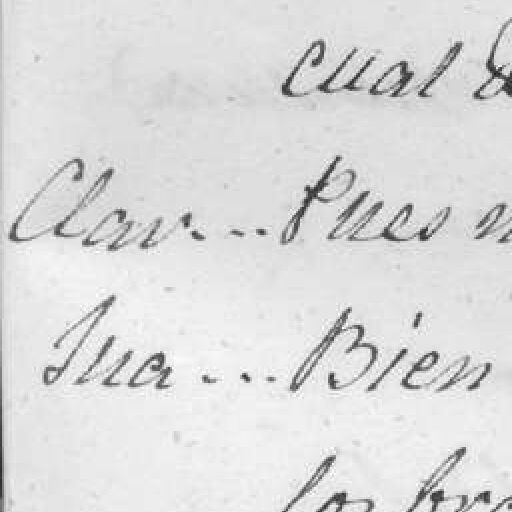 cual
Clav... Pues
Jua... Bien